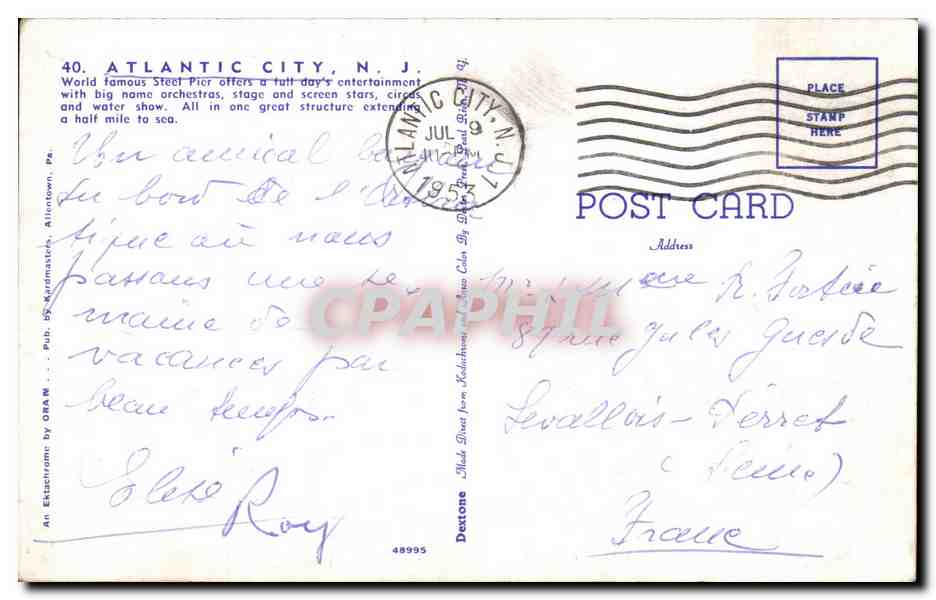 40. ATLANTIC CITY, N. J.
World famous Steel Pier offers a full day's entertainment
with big name orchestras, stage and screen stars, circus
and water show. All in one great structure extending
a half mile to sea.
Un amical
du bord de l'Atlan
tique où nous
passons une se
maine de
vacances par
beau temps.
Roy
An Ektachrome by ORAM . . . Pub. by Kardmasters, Allentown, Pa.
48995
Dextone Made Direct from Kodachrome and Ansco Color By Dexter Press, Pearl River, N. Y.
ATLANTIC CITY, N. J.
JUL 9
1953
PLACE
STAMP
HERE
POST CARD
Address
87 rue Jules Guesde
Levallois-Perret
(Seine)
France
CPAPHIL